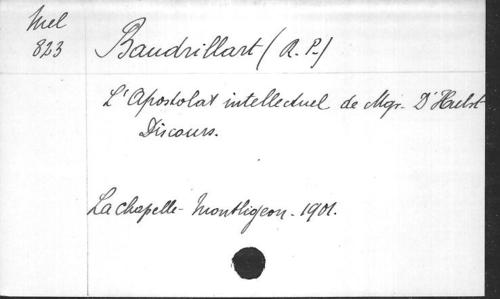 Mel
823
Baudrillart (R. P.)
L'Apostolat intellectuel de Mgr. D'Hulst
Discours.
La Chapelle-Montligeon-1901.